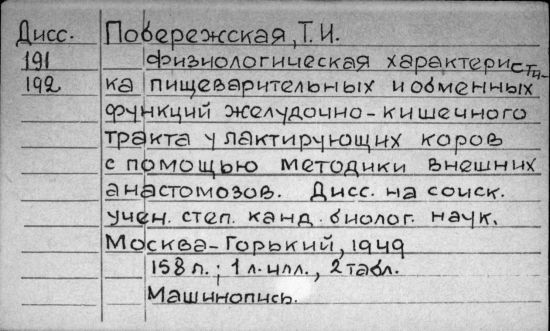 Дисс. Побережская, Т. И.
191 физиологическая характеристи-
192 ка пищеварительных и обменных
функций желудочно-кишечного
тракта у лактирующих коров
с помощью методики внешних
анастомозов. Дисс. на соиск.
учен. степ. канд. биолог. наук.
Москва-Горький, 1949
158 л.; 1 л. илл., 2 табл.
Машинопись.